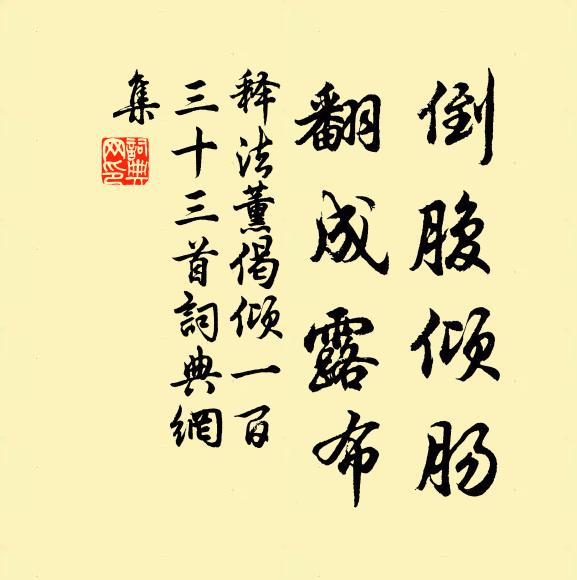 倒腹倾肠
翻成露布
释法薰偈倾一百
三十三首詞典網
集
詞典
网印